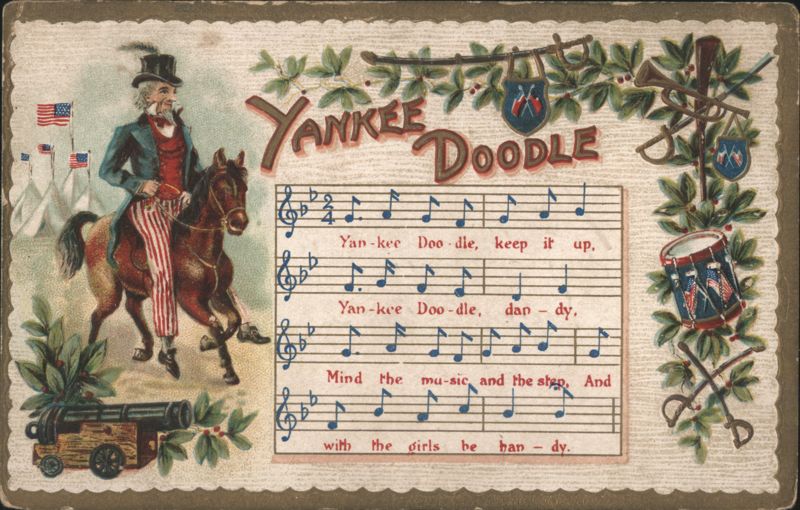 YANKEE DOODLE
2
4
Yan-kee Doo-dle, keep it up,
Yan-kee Doo-dle, dan-dy,
Mind the mu-sic and the step, And
with the girls be han-dy.